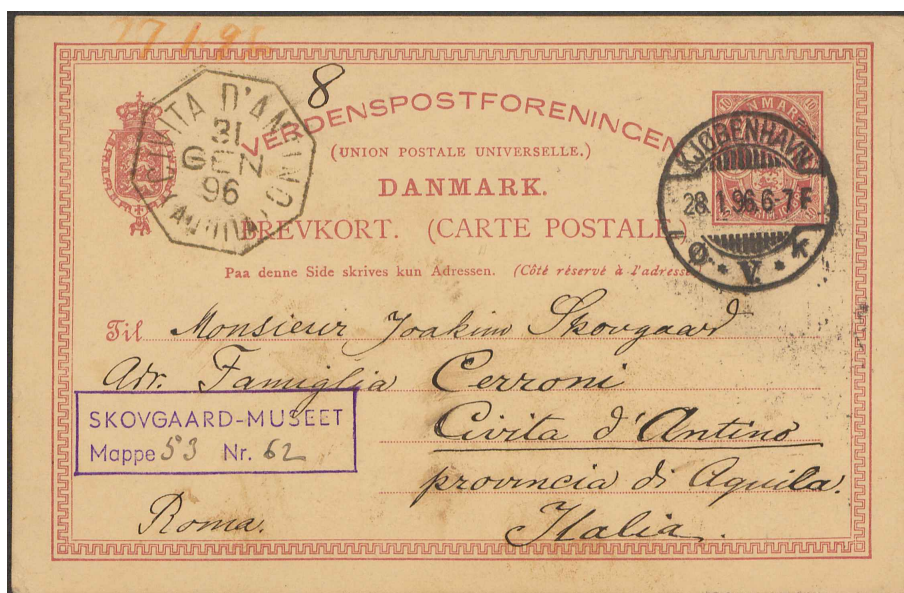 27.1.96
8
CIVITA D'ANTINO
31
GEN
96
(AQUILA)
VERDENSPOSTFORENINGEN
(UNION POSTALE UNIVERSELLE.)
DANMARK.
BREVKORT. (CARTE POSTALE)
Paa denne Side skrives kun Adressen. (Côté réservé à l'adresse
10 DANMARK 10
KJØBENHAVN
28.1.96.6-7F
Ø. * V. * K
Til Monsieur Joakim Skovgaard
Adr. Famiglia Cerroni
Civita d'Antino
SKOVGAARD-MUSEET
Mappe 53 Nr. 62
provincia di Aquila.
Roma.
Italia.